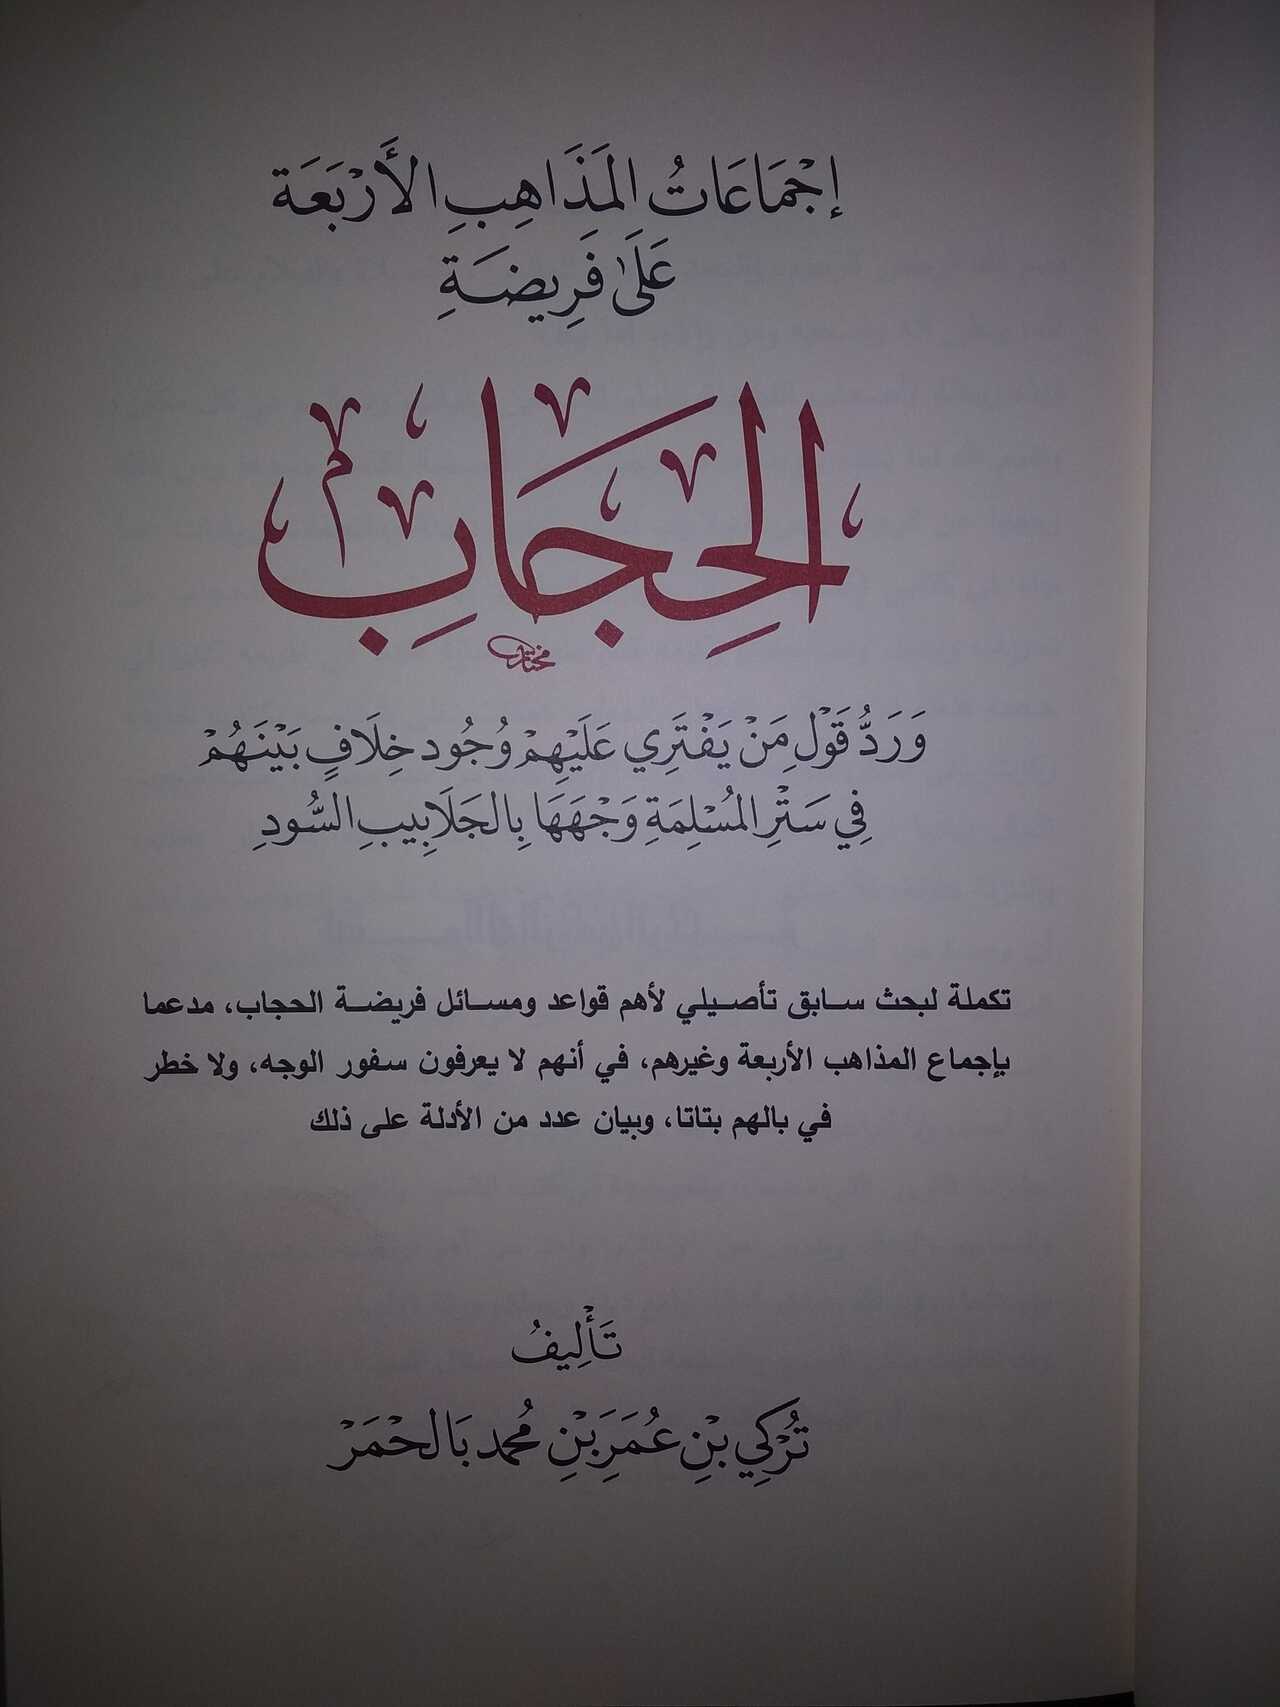 إِجْمَاعَاتُ المَذَاهِبِ الأَرْبَعَة
عَلَى فَرِيضَةِ
الحِجَابِ
مختار
وَرَدُّ قَوْلِ مَنْ يَفْتَرِي عَلَيْهِمْ وُجُود خِلَافٍ بَيْنَهُمْ
فِي سَتْرِ المُسْلِمَةِ وَجْهَهَا بِالجَلَابِيبِ السُّودِ
تكملة لبحث سابق تأصيلي لأهم قواعد ومسائل فريضة الحجاب، مدعما
بإجماع المذاهب الأربعة وغيرهم، في أنهم لا يعرفون سفور الوجه، ولا خطر
في بالهم بتاتا، وبيان عدد من الأدلة على ذلك
تَأْلِيفُ
تُرْكِي بْنِ عُمَرَ بْنِ مُحمد بَالحْمَرْ